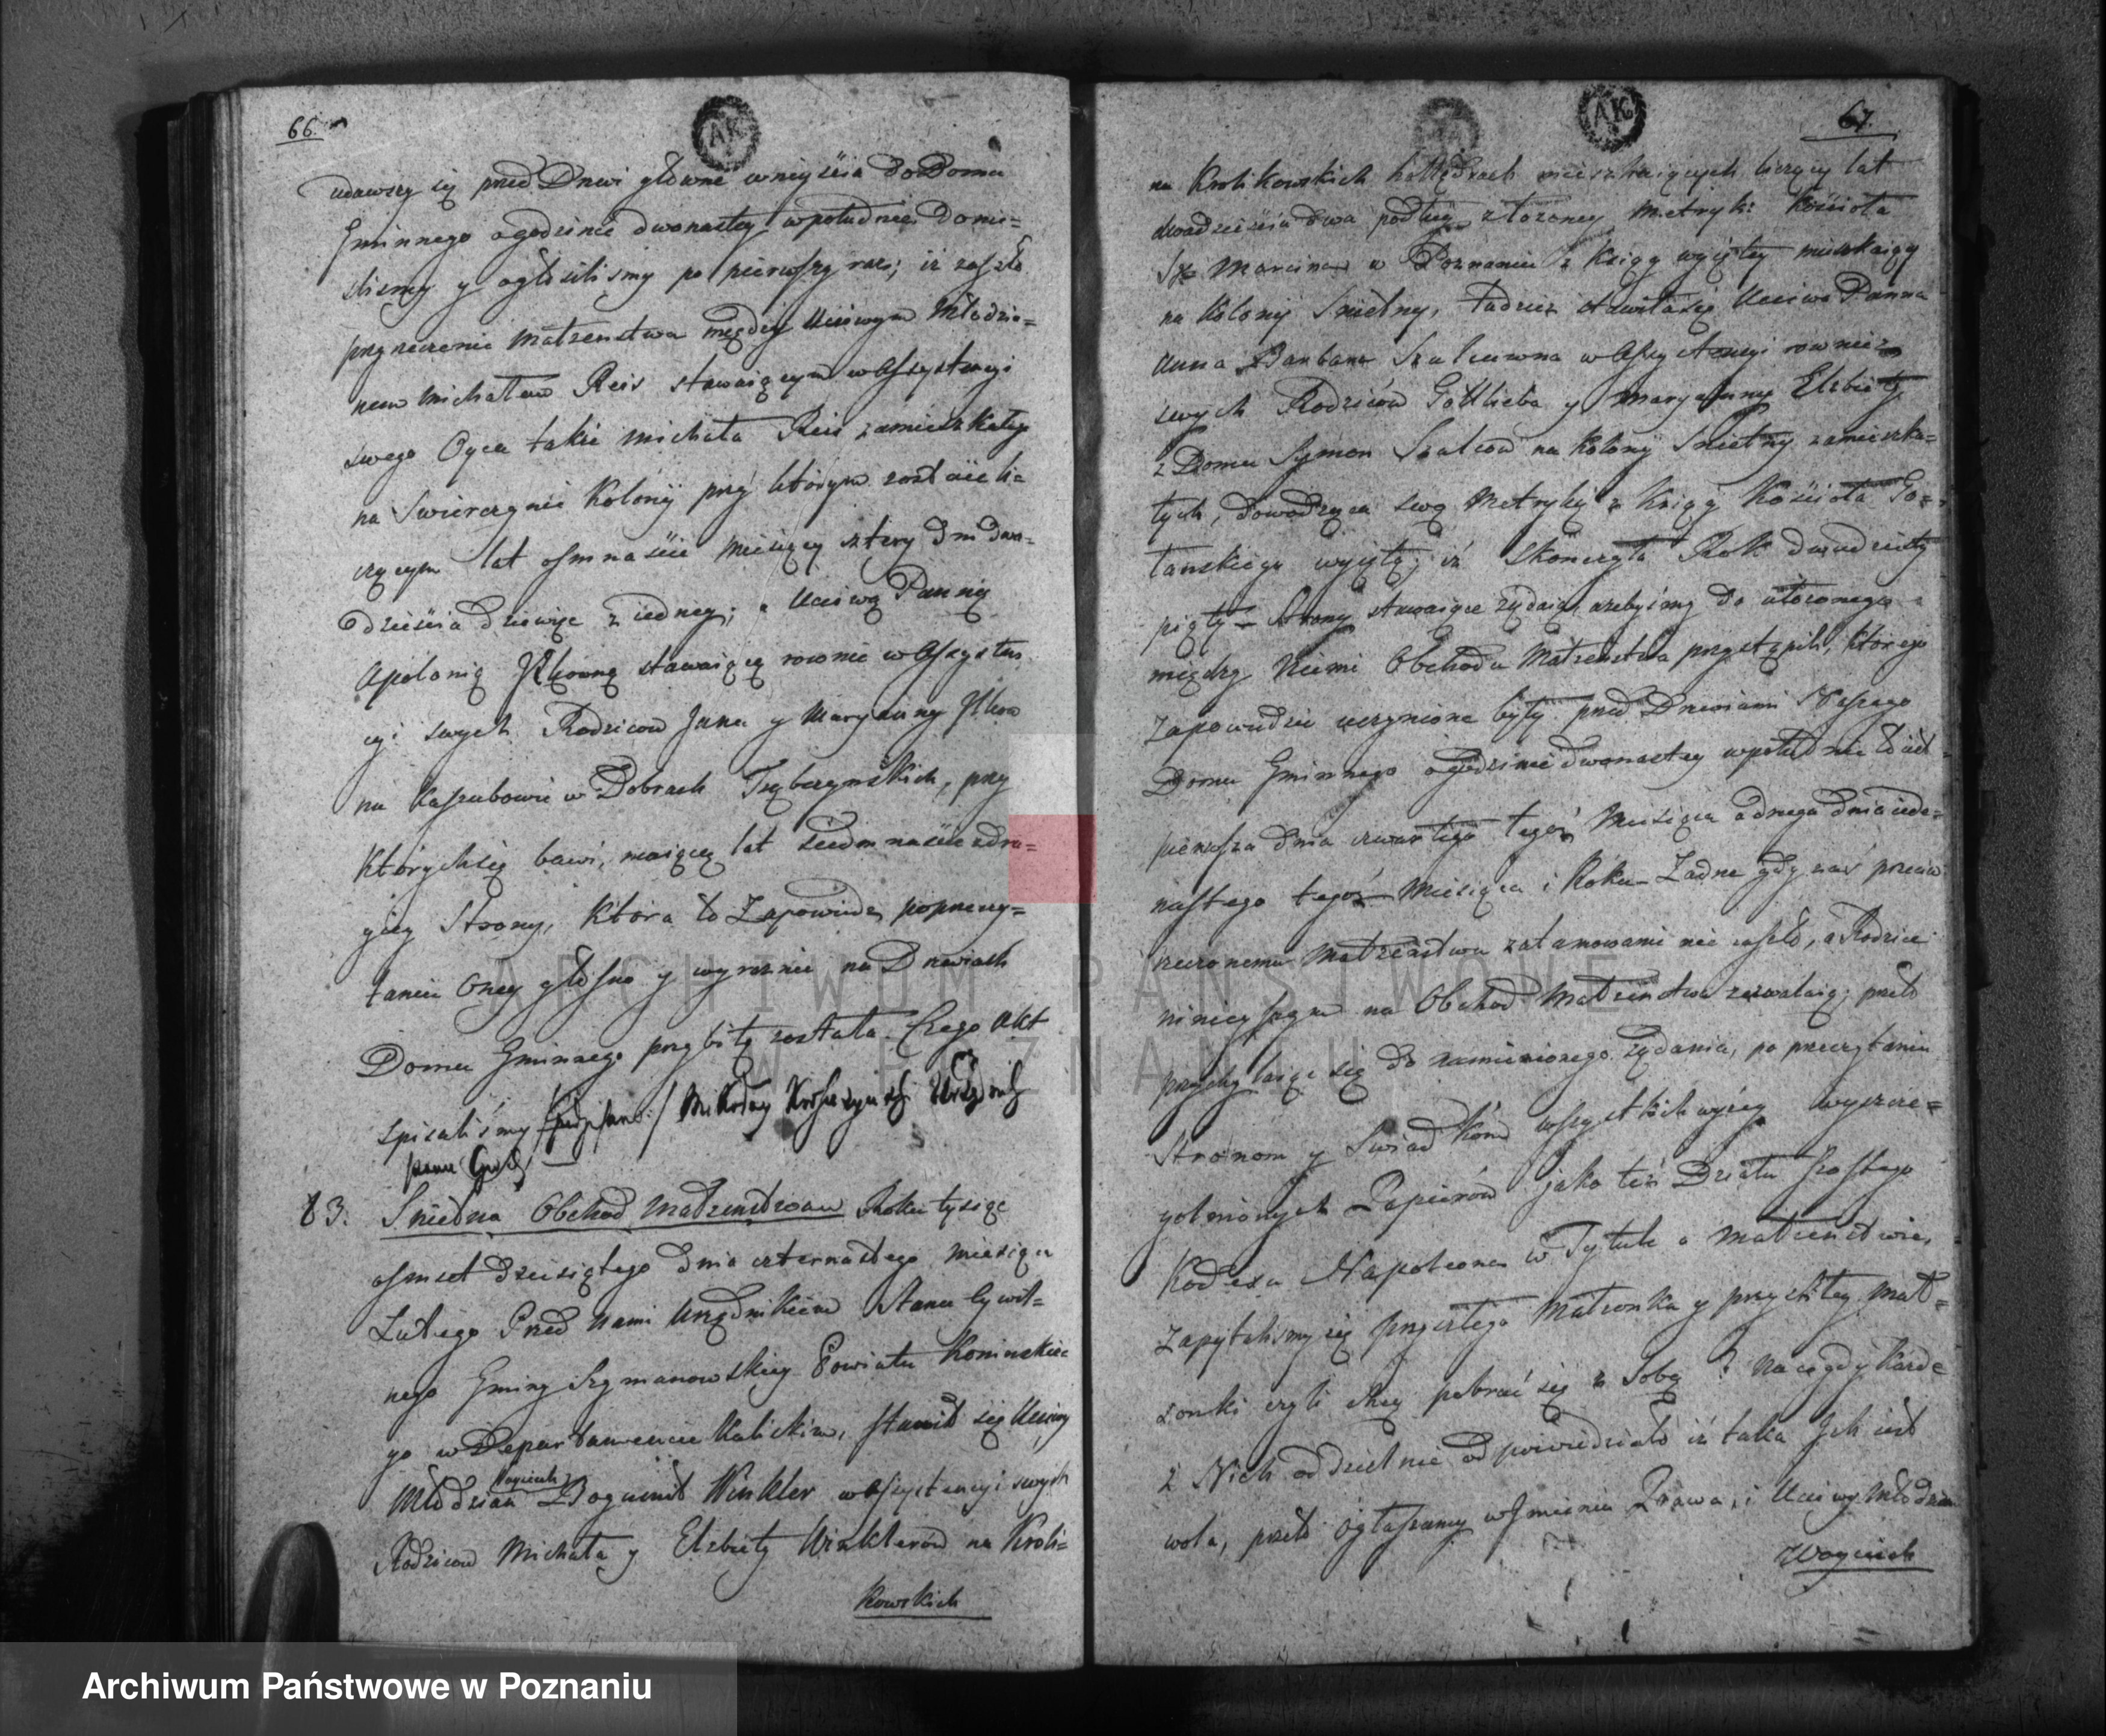 66.
AK
udawszy się przed Drzwi główne wniyścia do Domu
Gminnego o godzinie dwunastey w południe, donie=
sliśmy y ogłosiliśmy po pierwszy raz; iż zaszło
przyrzeczenie Małżenstwa między Uczciwym Młodzia=
nem Michałem Reis stawaiącym w Assystencyi
swego Oyca także Michała Reis zamieszkałego
na Swierczynie Kolonij przy którym zostaie li=
czącym lat osmnaście Miesięcy cztery Dni dwa=
dzieścia dziewięć z iedney; a Uczciwą Panną
Apolonią stawaiącą rownie w Assysten
cyi swych Rodziców Jana y Maryanny
na Kaszubowie w Dobrach Trąbczyńskich, przy
których się bawi, maiącą lat siedmnaście z dru=
giey Strony, która to Zapowiedz po przeczy=
taniu oney głosno y wyraznie na Drzwiach
Domu Gminnego przybitą została. Czego Akt
spisaliśmy /podpisano:/ Mikołay Urzędnik
Stanu Cywil: —
83. Snietna Obchod Małzenstwa Roku tysiąc
osmset dziesiątego dnia czternastego Miesiąca
Lutego Przed Nami Urzędnikiem Stanu Cywil=
nego Gminy Szymanowskiey Powiatu Koninskie
go w Departamencie Kaliskim, stawił się Uczciwy
Woyciech
Młodzian Bogumił Winkler w Assystencyi swych
Rodziców Michała y Elzbiety Winklerów na Kroli=
kowskich
AK
67.
na Krolikowskich hollędrach mieszkaiących liczący lat
dwadzieścia dwa podług złożoney Metryki Kościoła
S. Marcina w Poznaniu z Księgi wyiętey mieszkaiący
na Kolonij Snietny, tudzież stawiła się Uczciwa Panna
Anna Barbara Szulcówna w Assystencyi rownież
swych Rodziców Gottlieba y Maryanny Elzbiety
z Domu Symon Szulców na Kolonij Snietny zamieszka=
łych, dowodząca swą Metryką z Księgi Kościoła Go=
tanskiego wyiętą; iż skonczyła Rok dwudziesty
piąty — Strony stawaiące żądaią, ażebyśmy do ułożonego
między Niemi Obchodu Małżenstwa przystąpili, którego
Zapowiedzie uczynione były przed Drzwiami Naszego
Domu Gminnego o godzinie dwunastey w południe to iest
pierwsza dnia czwartego tegoż Miesiąca a druga dnia iede=
nastego tegoż Miesiąca i Roku — Żadne gdy zaś przeciw
rzeczonemu Małżenstwu zatamowanie nie zaszło, a Rodzice
ninieyszym na Obchod Małżenstwa zezwalaią; przeto
przychylaiąc się do namienionego żądania, po przeczytaniu
Stronom y Świadkom wszystkich wyżey wyszcze=
golnionych Papierów jako też Działu szostego
Kodexu Napoleona w Tytule o Małżenstwie,
Zapytaliśmy się przyszłego Małżonka y przyszłey Mał=
żonki czyli chcą pobrać się z Sobą? Na co gdy każde
z Nich oddzielnie odpowiedziało iż taka Ich iest
wola, przeto ogłaszamy w Imieniu Prawa, i Uczciwy Młodzian
Woyciech
ARCHIWUM PAŃSTWOWE
W POZNANIU
Archiwum Państwowe w Poznaniu